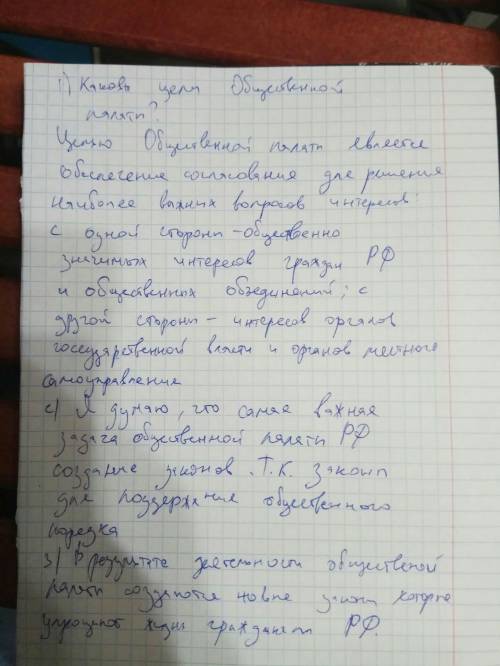 1) Каковы цели Общественной
палаты?
Целью Общественной палаты является
обеспечение согласования для решения
наиболее важных вопросов интересов
с одной стороны - общественно
значимых интересов граждан РФ
и общественных объединений; с
другой стороны - интересов органов
государственной власти и органов местного
самоуправление
2) Я думаю, что самая важная
задача общественной палаты РФ
создание законов. Т.К. Закон
для поддержание общественного
порядка
3) В результате деятельности общественой
палаты создаются новые законы которые
упрощают жизнь гражданам РФ.